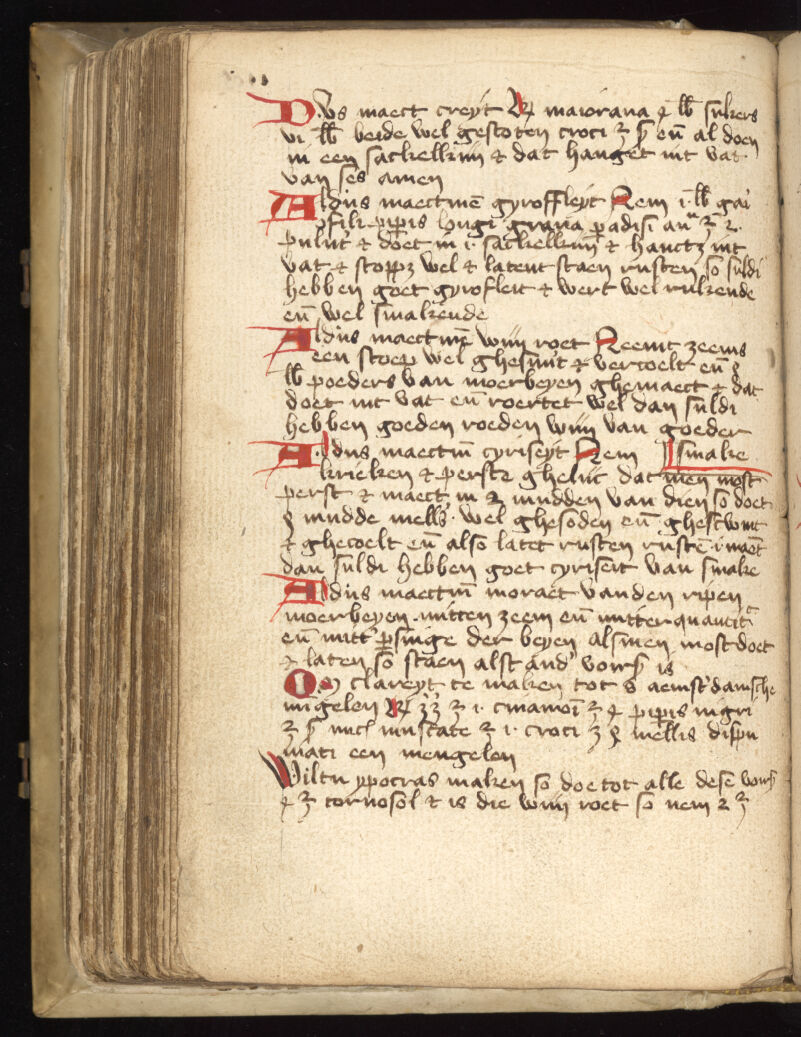 Dus maect creyt ℞ maiorana ꝭ lb sukers
vi lb beide wel gestoten croci ʒ ß en̄ al doen
in een sackelkijn ⁊ dat hanget int vat
van ses amen
Aldus maectmē gyroffleyt Nem i lb gai
ofili pipis longi grana paradisi an̄ ʒ 2.
pulūt ⁊ doet in i sackelkijn ⁊ hanctʒ int
vat ⁊ stoppʒ wel ⁊ latent staen rusten so suldi
hebben goet gyrofleit ⁊ wert wel rukende
en̄ wel smakende
Aldus maectmē wijn roet Neemt zeems
een stoep wel ghesuūt ⁊ vercoelt en̄
lb poeders van moerbeyen ghemaect ⁊ dat
doet int vat en̄ roertet wel dan suldi
hebben goeden roeden wijn van goeder
Aldus maectm̄ cyriseyt Nem smake
krieken ⁊ perstʒ ghelīc dat men most
perst ⁊ maect in 2 mudden van dien so doet
mudde mell' wel ghesoden en̄ ghescumt
⁊ ghecoelt en̄ also latet rusten rustē i maēt
dan suldi hebben goet cyriseit van smake
Aldus maectm̄ moraet vanden ripen
moerbeyen mitten zeem en̄ mitter quantit
en̄ mitt' persinge der beyen alsmen most doet
⁊ laten so staen alst and' vors is
Om clareyt te maken tot 8 aemst'damsche
mīgelen ℞ ʒ i cinamoī ʒ pipis nigri
ʒ ß nuc' muscate ʒ i croci ʒ mellis dispu
mati een mengelen
Wiltu ypocras maken so doe tot alle dese vors
ʒ tornosol ⁊ is die wijn roet so nem 2 ʒ